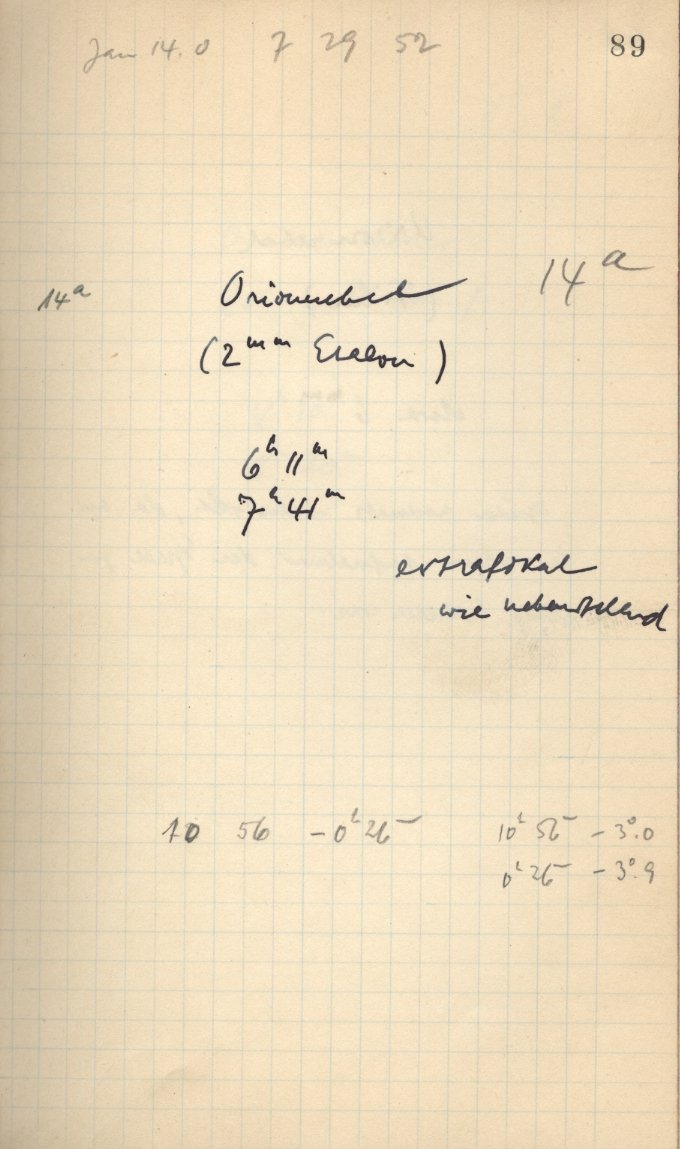 Jan 14.0 7 29 52 89
14ᵃ Orionnebel 14ᵃ
(2ᵐᵐ Etalon)
6ʰ 11ᵐ
7ʰ 41ᵐ
extrafokal
wie nebenstehend
10 56 – 0ʰ 26ᵐ 10ʰ 56ᵐ – 3°.0
0ʰ 26ᵐ – 3°.9